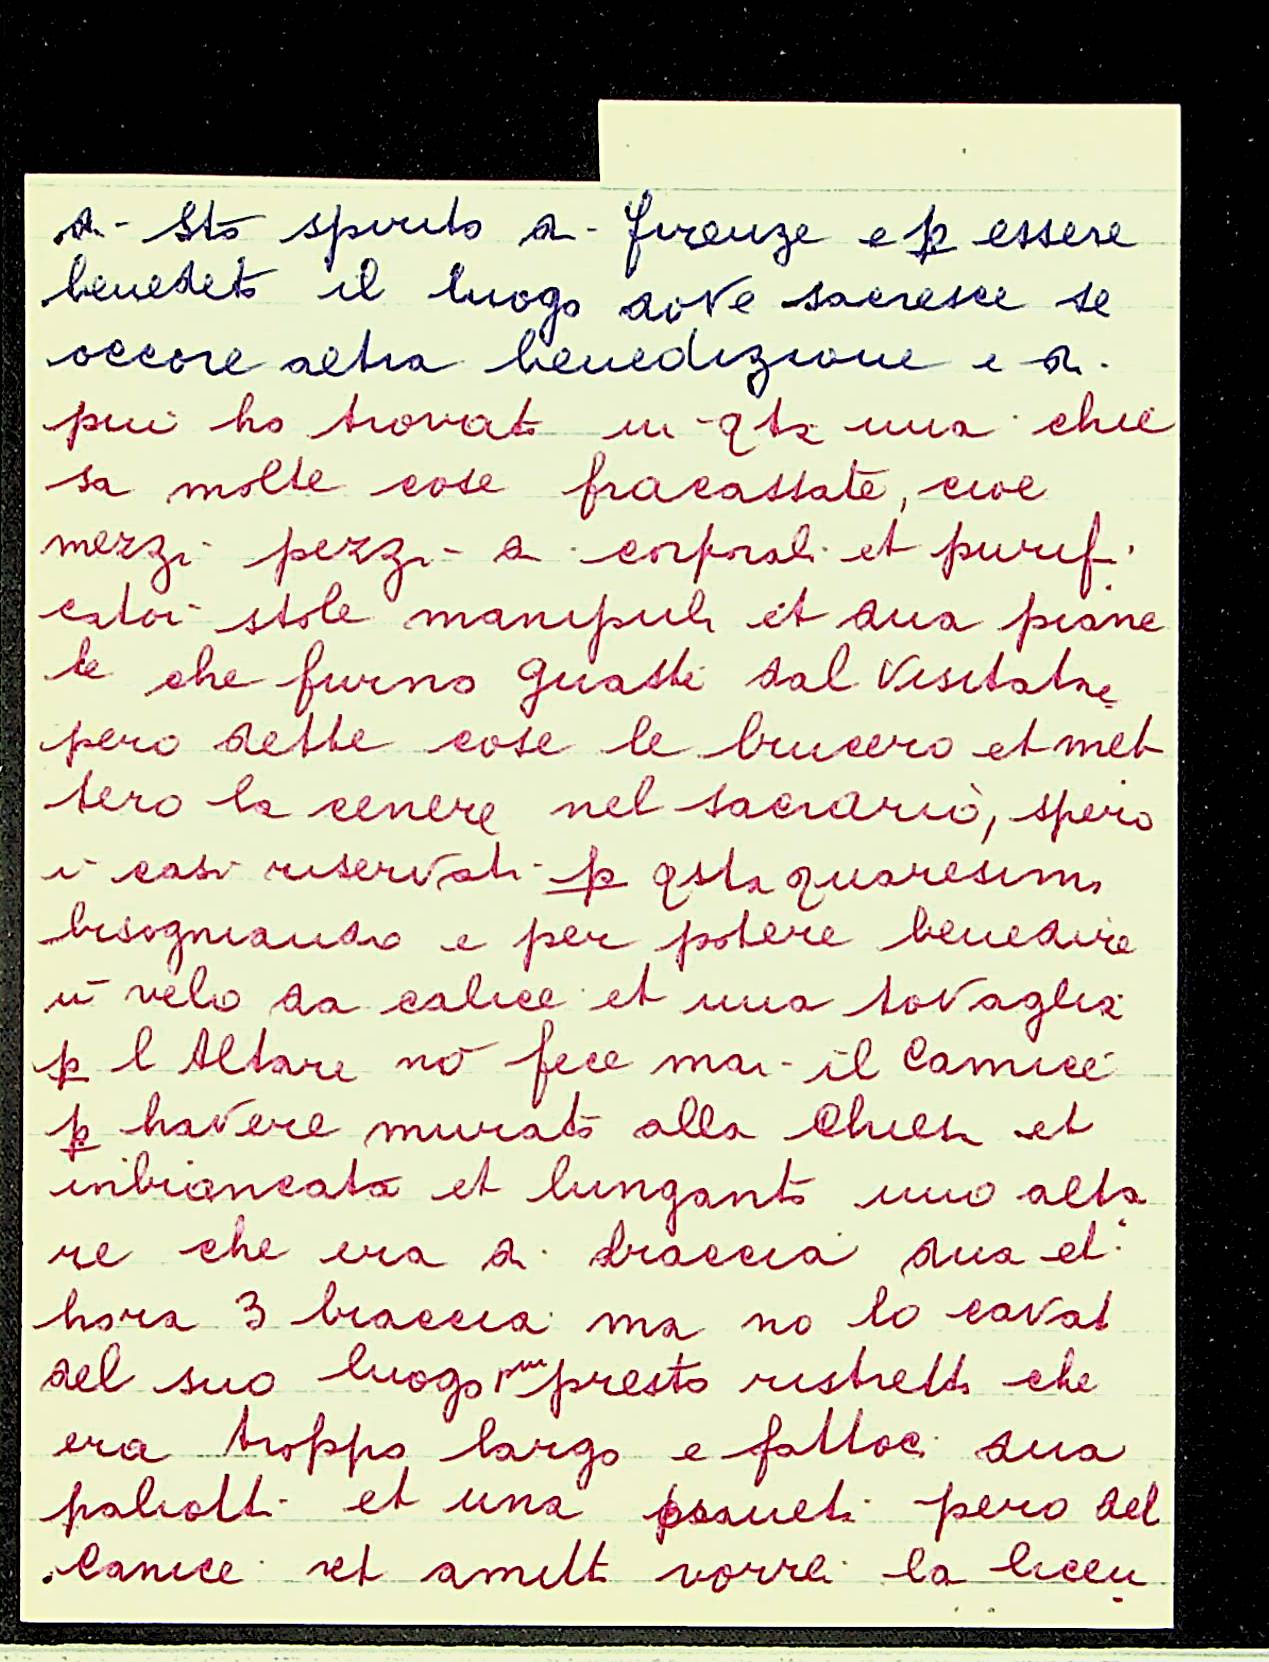 di - Sto spirito di - firenze e p essere
benedeto il luogo dove sacresce se
occore altra benedizione e di.
piu ho trovato in qta mia chie
sa molte cose fracassate, cioe
mezzi pezzi - di corporali et purifi
catoi stole manipuli et dua piane
te che furno guasti dal Visitatre
pero dette cose le brucero et met
tero la cenere nel sacrario, spero
i casi riservati p qsta quaresima
bisogniando e per potere benedire
ū velo da calice et una tovaglia
p l Altare nō fece mai il Camice
p havere murato alla Chiesa et
inbiancata et lungato uno alta
re che era di braccia dua et
hora 3 braccia ma no lo cavat
del suo luogo piu presto ristretto che
era troppo largo e fattoci dua
paliotti et una pianeti pero del
Camice et amitt vorrei la licen